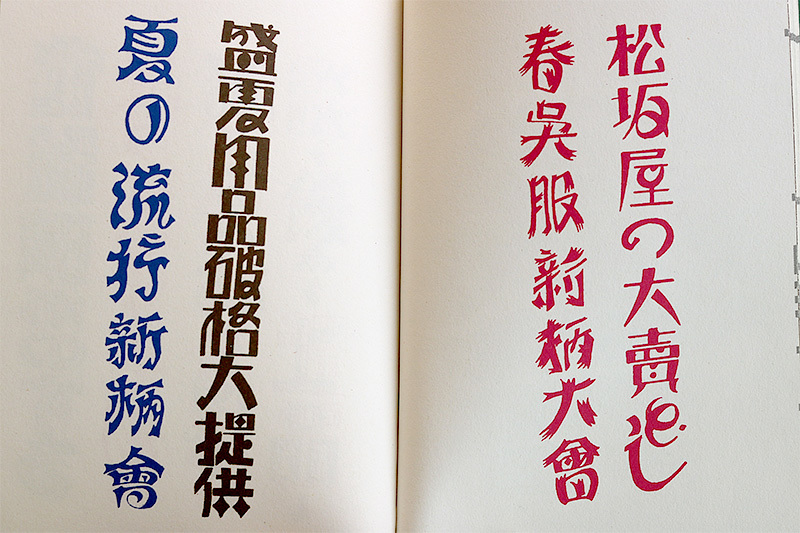 松坂屋の大賣出し
春吳服新柄大會
盛夏用品破格大提供
夏の流行新柄會